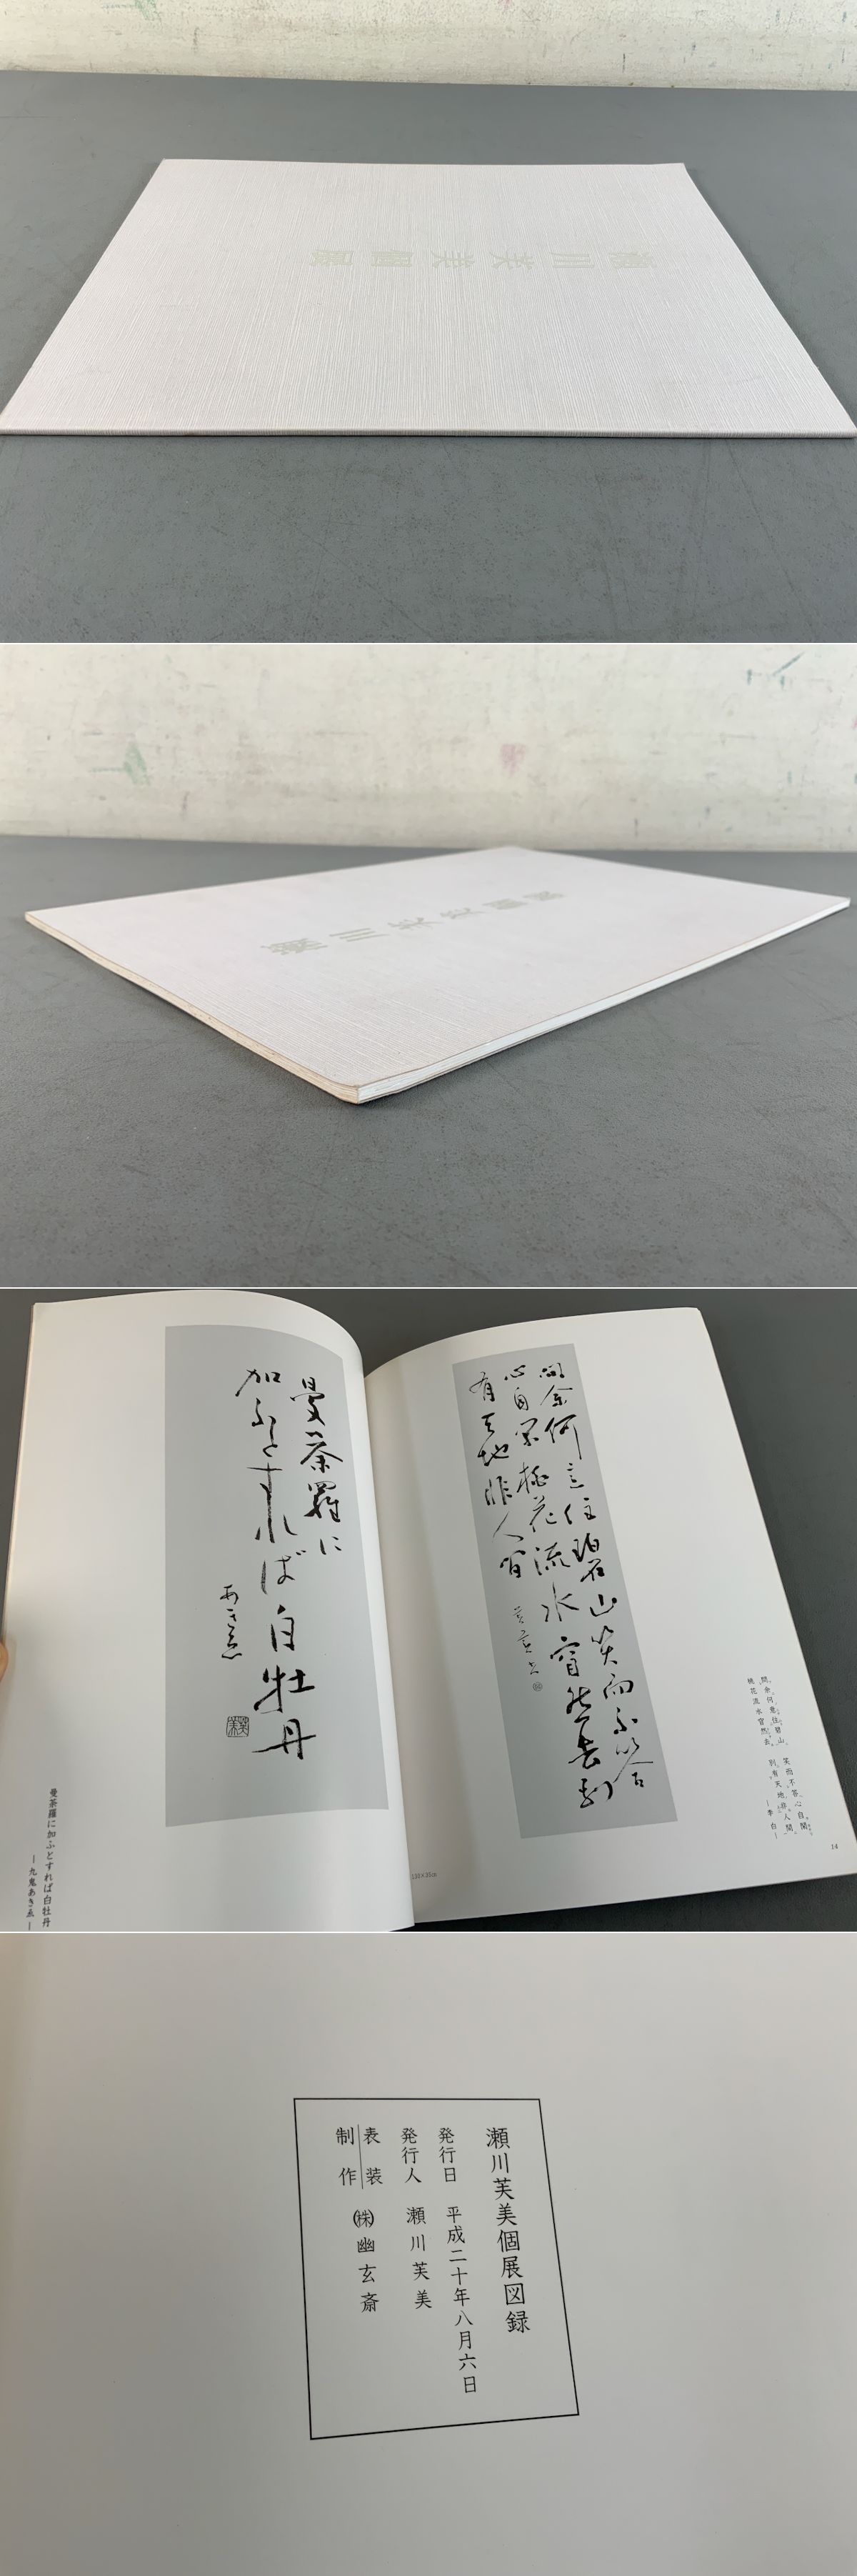 瀬川芙美個展
瀬川芙美個展
問余何意住碧山笑而不答
心自閑桃花流水窅然去別
有天地非人間
問余何意住碧山、笑而不答心自閑。
桃花流水窅然去、別有天地非人間。
―李白―
14
曼荼羅に
加ふとすれば白牡丹
あきゑ
曼荼羅に加ふとすれば白牡丹
―九鬼あきゑ―
瀬川芙美個展図録
発行日 平成二十年八月六日
発行人 瀬川芙美
表装
制作 ㈱幽玄斎